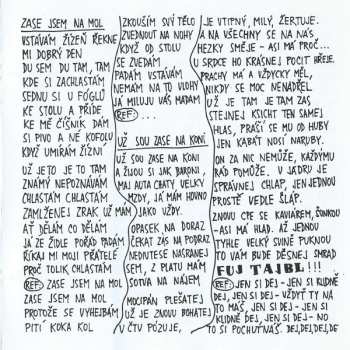 ZASE JSEM NA MOL
VSTÁVÁM ŽÍZEŇ ŘEKNE
MI DOBRÝ DEN
DU SEM DU TAM, TAM
KDE SI ZACHLASTÁM
SEDNU SI U FÓGLŮ
KE STOLU A PŘIDE
KE MĚ ČÍŠNÍK DÁM
SI PIVO A NĚ KOFOLU
KDYŽ UMÍRÁM ŽÍZNÍ
UŽ JE TO JE TO TAM
ZNÁMÝ NEPOZNÁVÁM
CHLASTÁM CHLASTÁM
ZAMLŽENEJ ZRAK UŽ MÁM
AŤ DĚLÁM CO DĚLÁM
JÁ ZE ŽIDLE POŘÁD PADÁM
ŘÍKAJ MI MOJI PŘÁTELÉ
PROČ TOLIK CHLASTÁM
REF: ZASE JSEM NA MOL
ZASE JSEM NA MOL
PROTOŽE SE VYHEJBÁM
PITÍ KOKA KOL
ZKOUŠÍM SVÝ TĚLO
ZVEDNOUT NA NOHY
KDYŽ OD STOLU
SE ZVEDÁM
PADÁM VSTÁVÁM
NEMÁM NA TO VLOHY
JÁ MILUJU VÁS MADAM
REF: ...
UŽ SOU ZASE NA KONI
UŽ SOU ZASE NA KONI
A ŽIJOU SI JAK BARONI,
MAJ AUTA CHATY VELKY
MZDY, JÁ MÁM HOVNO
JAKO VŽDY.
OPASEK NA DORAZ
ČEKÁT ZAS NA PODRAZ
NEDNITESE NASRANEJ
SEM, Z PLATU MÁM
SOTVA NA NÁJEM
MOCIPÁN PLEŠATEJ
UŽ JE ZNOVU BOHATEJ
V ČTV PÓZUJE,
JE VTIPNÝ, MILÝ, ŽERTUJE.
A NA VŠECHNY SE NA NÁS
HEZKY SMĚJE - ASI MÁ PROČ...
U SRDCE HO KRÁSNEJ POCIT HŘEJE.
PRACHY MÁ A VŽDYCKY MĚL,
NIKDY SE MOC NENADŘEL.
UŽ JE TAM JE TAM ZAS
STEJNEJ KSICHT TEN SAMEJ
HLAS, PRÁŠÍ SE MU OD HUBY
JEN KABÁT NOSÍ NARUBY.
ON ZA NIC NEMŮŽE, KAŽDÝMU
RÁD POMŮŽE. V JÁDRU JE
SPRÁVNEJ CHLAP, JEN JEDNOU
PROSTĚ VEDLE ŠLÁP.
ZNOVU CPE SE KAVIÁREM, ŠUNKOU
-ASI MÁ HLAD. AŽ JEDNOU
TYHLE VELKÝ SVINĚ PUKNOU
TO VÁM BUDE DĚSNEJ SMRAD
FUJ TAJBL!!!
REF: JEN SI DEJ - JEN SI KLIDNĚ
DEJ, JEN SI DEJ - VŽDYŤ TY NA
TO MÁŠ, JEN SI DEJ - JEN SI
KLIDNĚ DEJ, JEN SI DEJ - NO
TO SI POCHUTNÁŠ. DEJ, DEJ, DEJ, DE